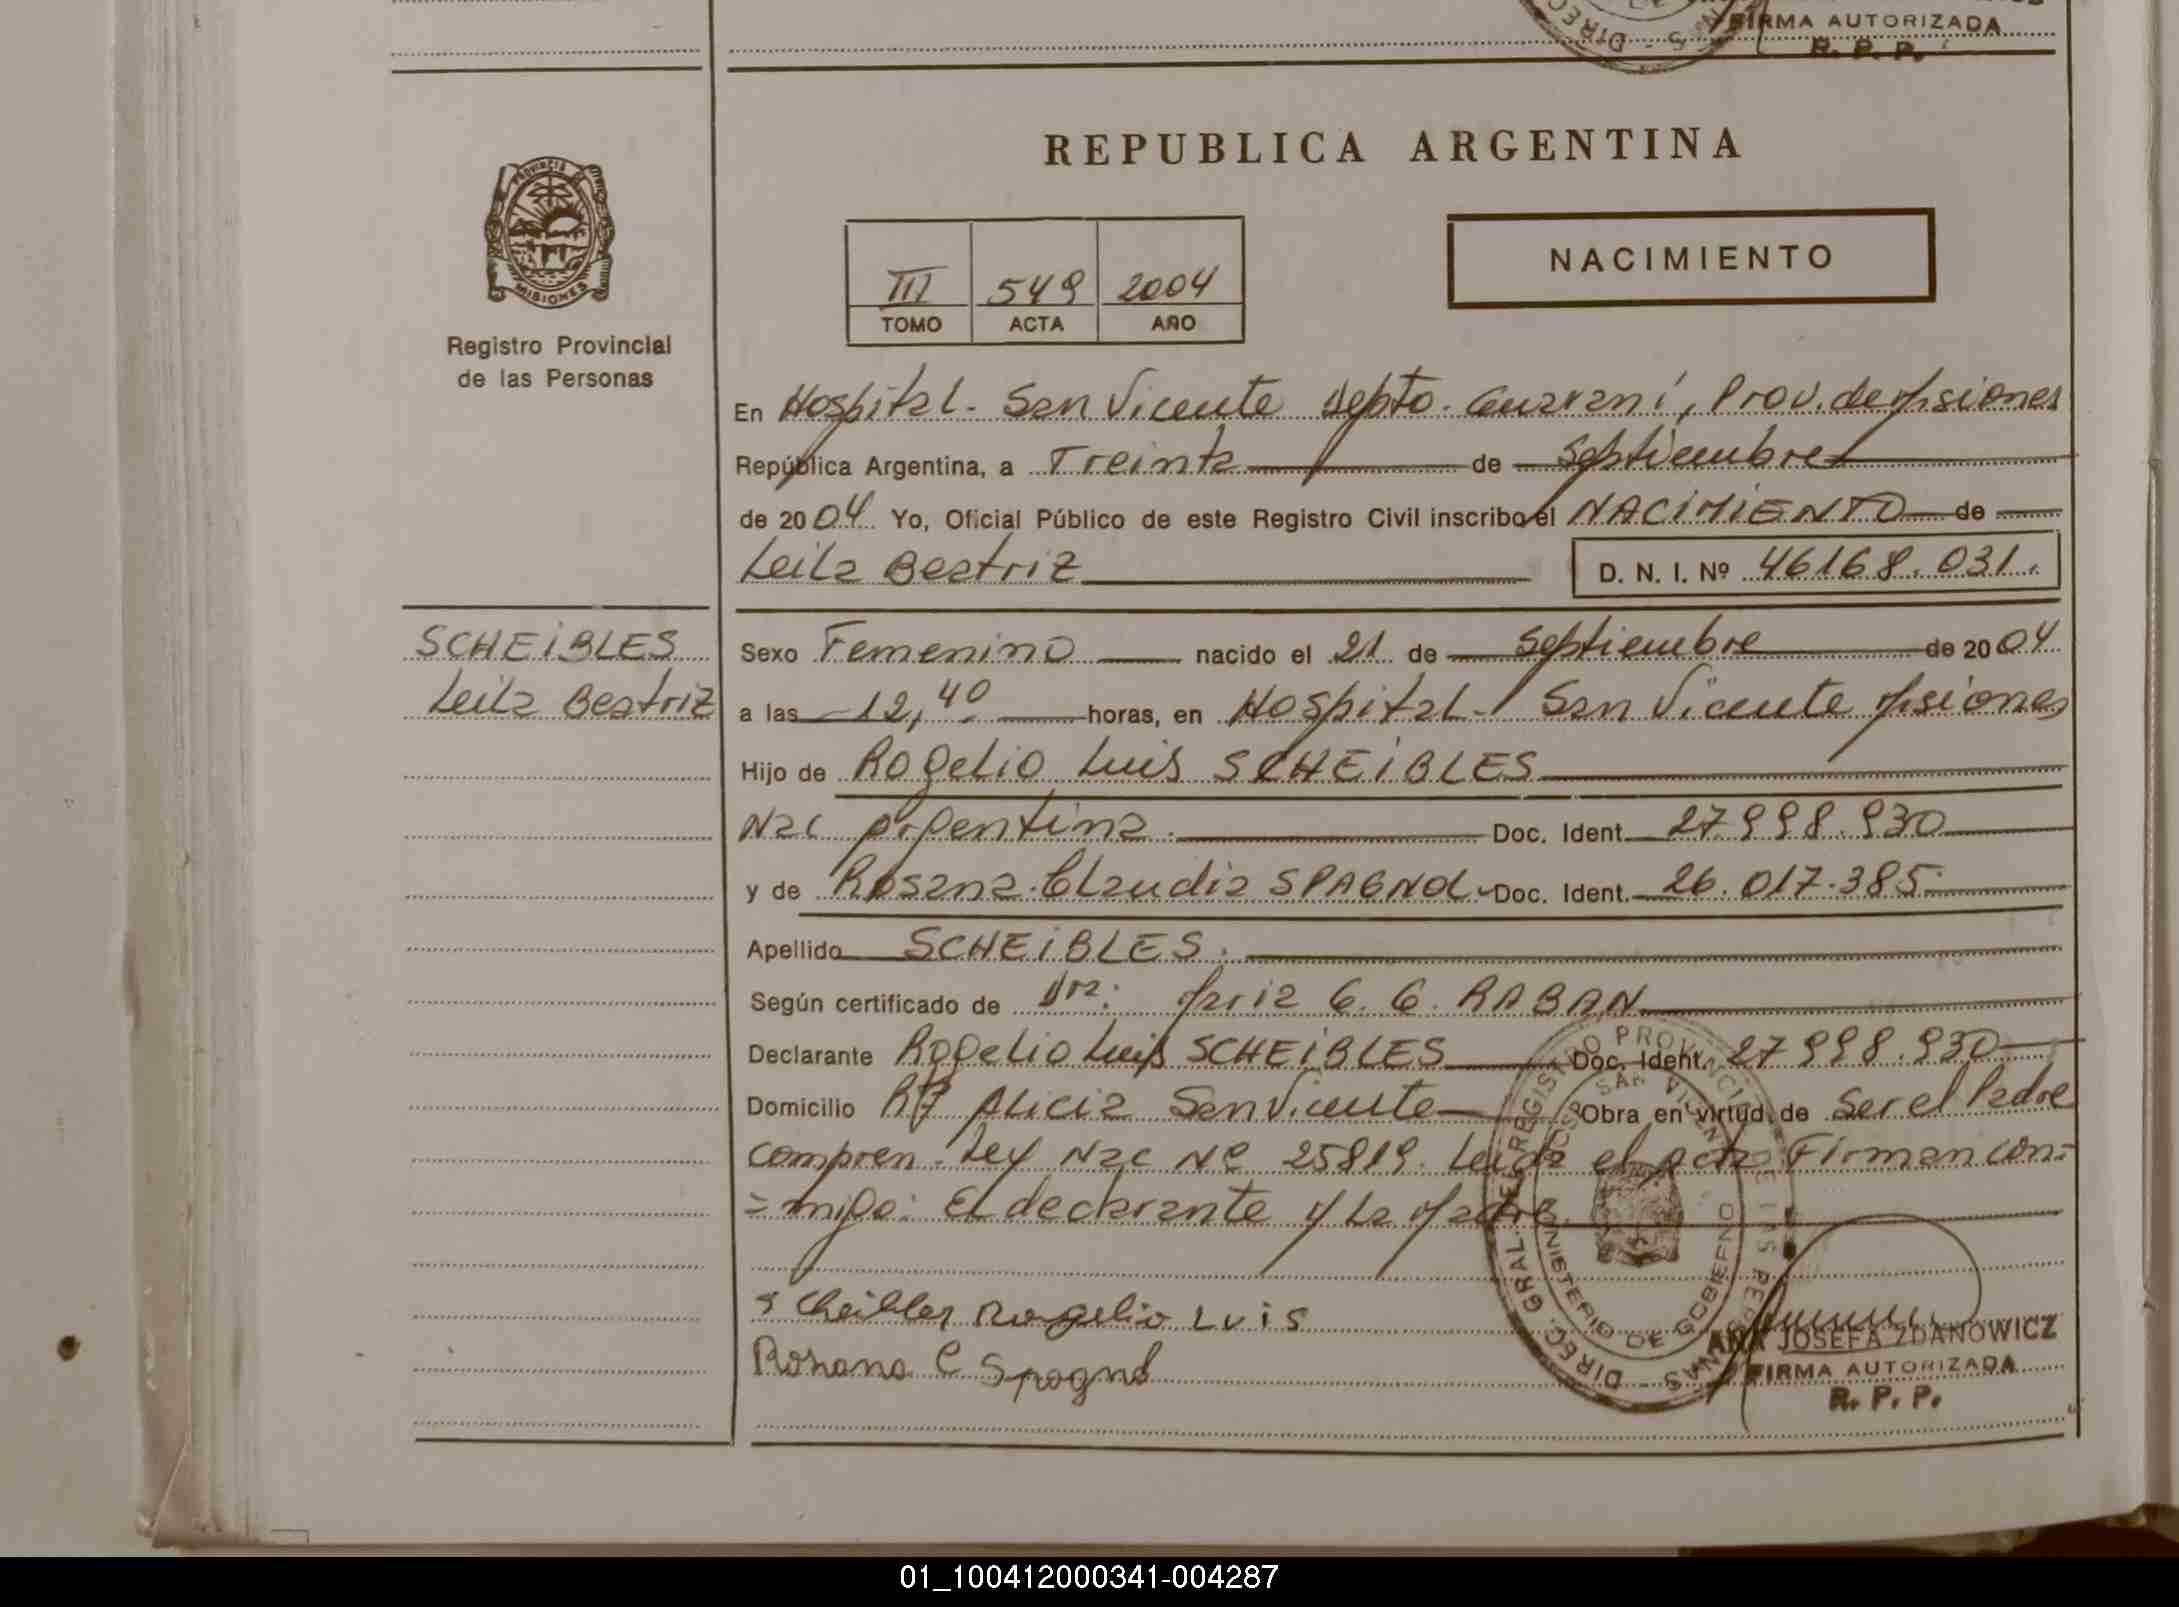 FIRMA AUTORIZADA
R. P. P.
REPUBLICA ARGENTINA
PROVINCIA DE
MISIONES
NACIMIENTO
III 549 2004
TOMO ACTA AÑO
Registro Provincial
de las Personas
En Hospital - San Vicente Depto. Guaraní, Prov. de Misiones
República Argentina, a Treinta de Septiembre
de 2004 Yo, Oficial Público de este Registro Civil inscribo el NACIMIENTO de
Leila Beatriz D. N. I. Nº 46168.031.
SCHEIBLES
Leila Beatriz
Sexo Femenino nacido el 21 de Septiembre de 2004
a las 12,40 horas, en Hospital - San Vicente Misiones
Hijo de Rogelio Luis SCHEIBLES
Nac Argentina. Doc. Ident. 27998.930
y de Rosana Claudia SPAGNOL - Doc. Ident. 26.017.385
Apellido SCHEIBLES.
Según certificado de Dra. Maria G. G. RABAN
Declarante Rogelio Luis SCHEIBLES Doc. Ident. 27998.930
Domicilio R7 Alicia San Vicente Obra en virtud de Ser el Padre
Compren. Ley Nac Nº 25819. Leida el acta Firman con=
=migo: El declarante y La Madre.
Scheibles Rogelio Luis
Rosana C Spagnol
DIREC. GRAL. DEL REGISTRO PROVINCIAL DE LAS PERSONAS
SAN VICENTE
MINISTERIO DE GOBIERNO
ANA JOSEFA ZDANOWICZ
FIRMA AUTORIZADA
R. P. P.
01_100412000341-004287